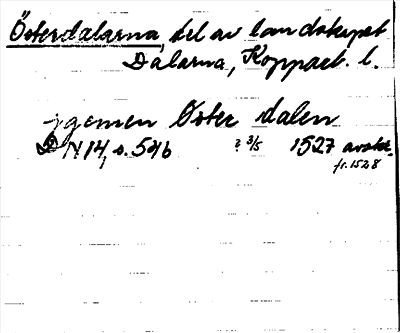 Österdalarna, del av landskapet
Dalarna, Kopparb. l.
jgemen Öster dalen
D N 14, s. 546 ? 3/5 1527 avskr.
fr. 1528